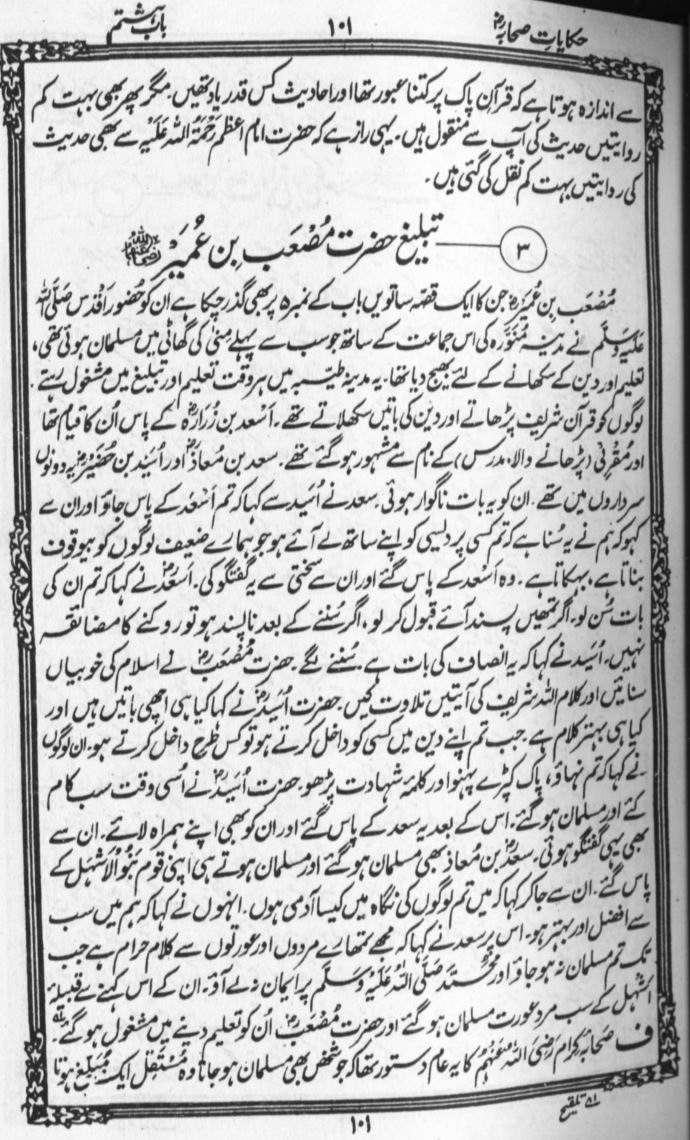 حکایاتِ صحابہؓ ۱۰۱ باب ہشتم
سے اندازہ ہوتا ہے کہ قرآن پاک پر کتنا عبور تھا اور احادیث کس قدر یاد تھیں۔ مگر پھر بھی بہت کم
روایتیں حدیث کی آپ سے منقول ہیں۔ یہی راز ہے کہ حضرت امام اعظم رَحْمَۃُ اللہ عَلَیْہ سے بھی حدیث
کی روایتیں بہت کم نقل کی گئی ہیں۔
۳ تبلیغ حضرت مُصْعَب بِن عُمَیْر رضی اللہ عنہ
مُصْعَب بِن عُمَیْرؓ جن کا ایک قصہ ساتویں باب کے نمبر ۵ پر بھی گذر چکا ہے ان کو حُضور اَقْدس صَلَّی اللہُ
عَلَیْہِ وَسَلَّم نے مدینہ مُنَوَّرہ کی اس جماعت کے ساتھ جو سب سے پہلے مِنیٰ کی گھاٹی میں مسلمان ہوئی تھی،
تعلیم اور دین کے سکھانے کے لئے بھیج دیا تھا۔ یہ مدینہ طیبہ میں ہر وقت تعلیم اور تبلیغ میں مشغول رہتے۔
لوگوں کو قرآن شریف پڑھاتے اور دین کی باتیں سکھلاتے تھے۔ اَسْعد بن زُرَارَہؓ کے پاس اُن کا قیام تھا
اور مُقْرِئ (پڑھانے والا، مدرس) کے نام سے مشہور ہو گئے تھے۔ سعد بن مُعاذؓ اور اُسَید بن حُضَیْرؓ یہ دونوں
سرداروں میں تھے۔ ان کو یہ بات ناگوار ہوئی۔ سعد نے اُسَید سے کہا کہ تم اَسْعد کے پاس جاؤ اور ان سے
کہو کہ ہم نے یہ سُنا ہے کہ تم کسی پردیسی کو اپنے ساتھ لے آئے ہو جو ہمارے ضعیف لوگوں کو بیوقوف
بناتا ہے، بہکاتا ہے۔ وہ اَسْعد کے پاس گئے اور ان سے سختی سے یہ گفتگو کی۔ اَسْعدؓ نے کہا کہ تم ان کی
بات سُن لو۔ اگر تمھیں پسند آئے قبول کر لو، اگر سُننے کے بعد ناپسند ہو تو روکنے کا مضائقہ
نہیں۔ اُسَید نے کہا کہ یہ انصاف کی بات ہے۔ سُننے لگے۔ حضرت مُصْعَبؓ نے اسلام کی خوبیاں
سنائیں اور کلام اللہ شریف کی آیتیں تلاوت کیں۔ حضرت اُسَیدؓ نے کہا کیا ہی اچھی باتیں ہیں اور
کیا ہی بہتر کلام ہے۔ جب تم اپنے دین میں کسی کو داخل کرتے ہو تو کس طرح داخل کرتے ہو۔ ان لوگوں
نے کہا کہ تم نہاؤ، پاک کپڑے پہنو اور کلمہ شہادت پڑھو۔ حضرت اُسَیدؓ نے اُسی وقت سب کام
کئے اور مسلمان ہو گئے۔ اس کے بعد یہ سعد کے پاس گئے اور ان کو بھی اپنے ہمراہ لائے۔ ان سے
بھی یہی گفتگو ہوئی۔ سعدؓ بن مُعاذ بھی مسلمان ہو گئے اور مسلمان ہوتے ہی اپنی قوم بَنُو الْاَشْہَل کے
پاس گئے۔ ان سے جا کر کہا کہ میں تم لوگوں کی نگاہ میں کیسا آدمی ہوں۔ انہوں نے کہا کہ ہم میں سب
سے افضل اور بہتر ہو۔ اس پر سعد نے کہا کہ مجھے تمہارے مردوں اور عورتوں سے کلام حرام ہے جب
تک تم مسلمان نہ ہو جاؤ اور محمد صَلَّی اللہُ عَلَیْہِ وَسَلَّم پر ایمان نہ لے آؤ۔ ان کے اس کہنے سے قبیلۂ
اَشْہَل کے سب مرد عورت مسلمان ہو گئے اور حضرت مُصْعَبؓ اُن کو تعلیم دینے میں مشغول ہو گئے۔ لہ
ف صحابۂ کِرام رَضِیَ اللہُ عَنْہُم کا یہ عام دستور تھا کہ جو شخص بھی مسلمان ہو جاتا وہ مُسْتَقِل ایک مُبَلِّغ ہوتا
لہ تلقیح
۱۰۱